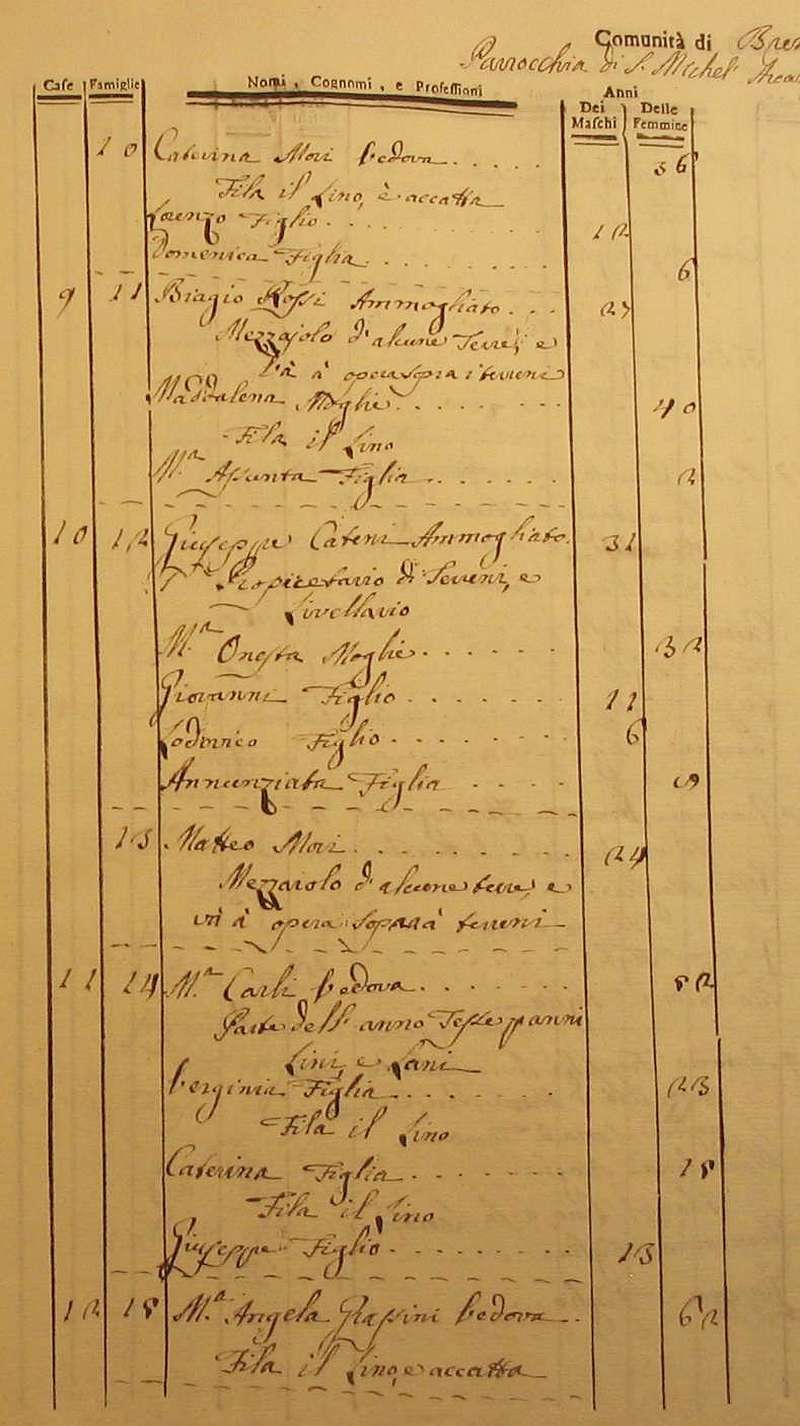 Comunità di Bres
Parrocchia di S. Michel
Case Famiglie Nomi, Cognomi, e Professioni Anni
Dei Maschi Delle Femmine
10 Caterina Mori Vedova . . . . . 36
Fila il lino, e accatta
Lorenzo Figlio . . . . 12
Domenica Figlia . . . . 6
9 11 Biagio Rossi Ammogliato . . . 27
Mezzajolo d'alcune Terre, e
Và à opera sopra i terreni
Maddalena Moglie . . . . 40
Fila il lino
M.a Assunta Figlia . . . . 2
10 12 Giuseppe Cateni Ammogliato. 31
Terreni, e
Livellario
M.a Onesta Moglie . . . . . . 32
Giovanni Figlio . . . . . 11
Lodovico Figlio . . . . . 6
Annunziata Figlia . . . . 9
13 Matteo Mori . . . . . 24
Mezzaiolo d'alcune terre, e
và à opera sopra à terreni
11 14 M.a Carli Vedova . . . . . 52
Parte dell'anno Tesse panni
lini, e lani
Verginia Figlia . . . . . 23
Fila il lino
Caterina Figlia . . . . . 18
Fila il lino
Giuseppe Figlio . . . . . 13
12 15 M.a Angela Vedova . . 62
Fila il lino, e accatta